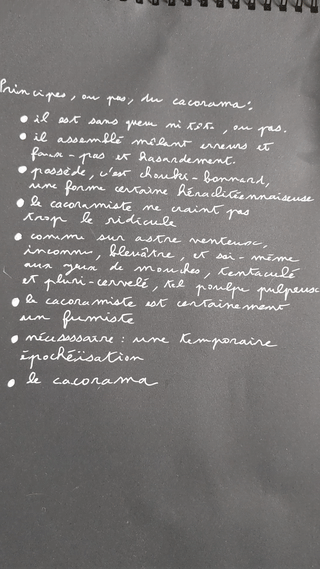 Principes, ou pas, du cacorama :
• il est sans queue ni tête, ou pas.
• il assemblé mêlant erreurs et
faux-pas et hasardement.
• possède, c'est choubi-bonnard,
une forme certaine héraclitéennaiseuse
• le cacoramiste ne craint pas
trop le ridicule
• comme sur astre venteux,
inconnu, bleuâtre, et soi-même
aux yeux de mouches, tentaculé
et pluri-cervelé, tel poulpe pulpeux
• le cacoramiste est certainement
un fumiste
• nécessaire : une temporaire
épochéïsation
• le cacorama